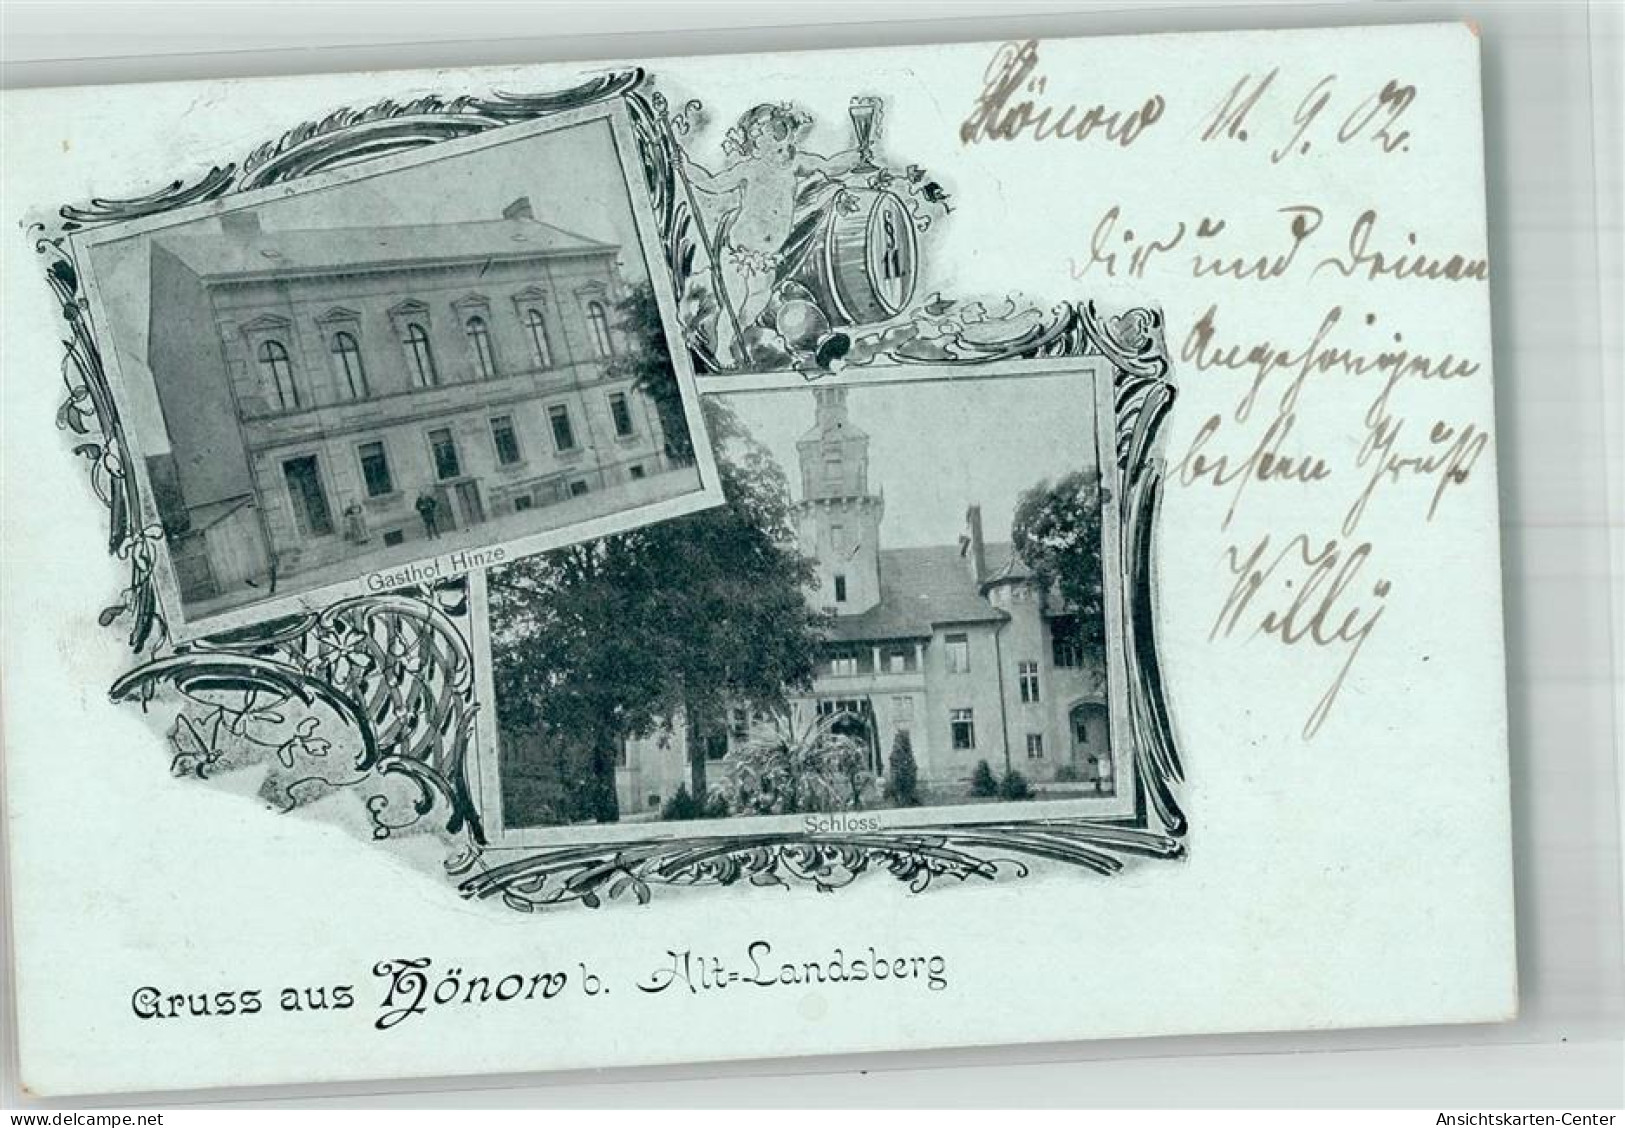 Hönow 11. 9. 02.
Dir und Deinen
Angehörigen
besten Gruß
Willÿ
Gasthof Hinze
Schloss
Gruss aus Hönow b. Alt=Landsberg
www.delcampe.net
Ansichtskarten-Center